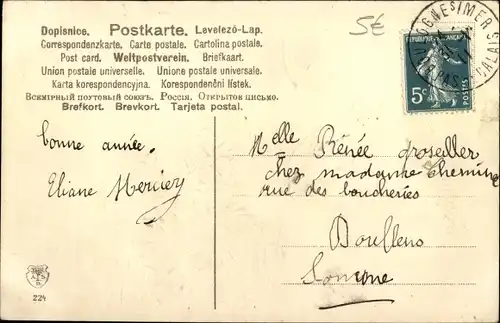 Dopisnice. Postkarte. Levelező-Lap.
Correspondenzkarte. Carte postale. Cartolina postale.
Post card. Weltpostverein. Briefkaart.
Union postale universelle. Unione postale universale.
Karta korespondencyjna. Korespondenční lístek.
Всемірный почтовый союзъ. Россія. Открытое письмо.
Brefkort. Brevkort. Tarjeta postal.
5€
CALAIS
RÉPUBLIQUE FRANÇAISE
5c
POSTES
bonne année.
Eliane Mercier
Melle Rénée Groseiller
chez madame Chemine
rue des boucheries
Doullens
Somme
224